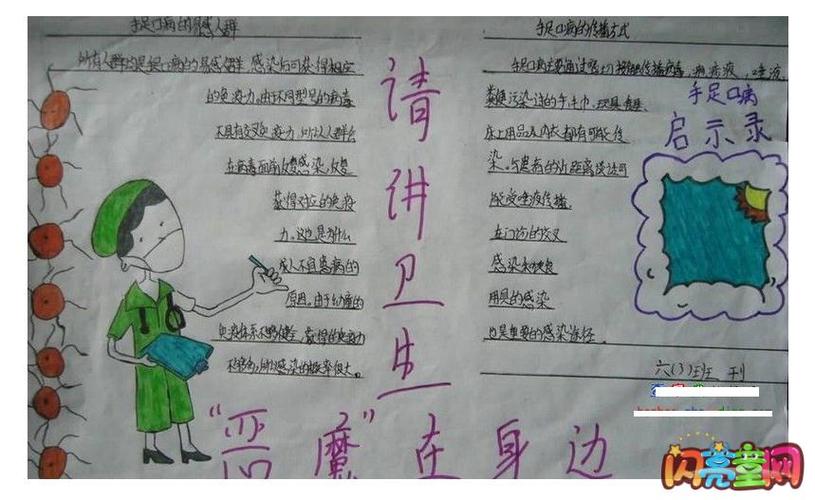 手足口病的易感人群
所有人群均是手足口病的易感人群 感染后可获得相应
的免疫力,由于不同型号的病毒
不具有交叉免疫力,所以人群会
在病毒面前反复感染,反复
获得对应的免疫
力,这也是为什么
成人不易患病的
原因。由于幼童的
免疫体系不够健全,获得的免疫力
不够多,所以感染的概率很大。
请讲卫生
手足口病的传播方式
手足口病主要通过密切接触传播病毒
粪便污染过的手、毛巾、玩具、
床上用品及内衣都有可能传
染。与患病的近距离接触可
能受唾液传播
在门诊的交叉
感染和
用具的感染
也是重要的感染途径
手足口病
启示录
六(3)班 刊
"恶魔"在身边
闪亮童网